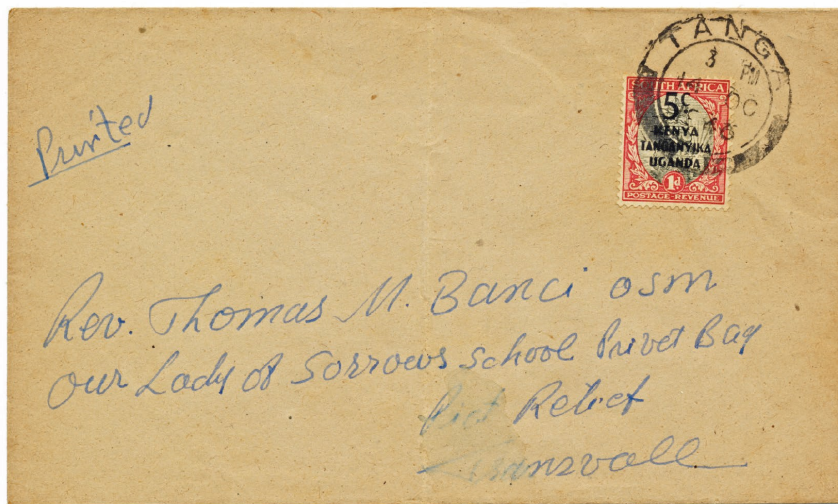 TANGA
3 PM
OC
46
SOUTH AFRICA
5c
KENYA
TANGANYIKA
UGANDA
1d
POSTAGE·REVENUE
Printed
Rev. Thomas M. Banci OSM
Our Lady of Sorrows School Privet Bag
Piet Relief
Transvall